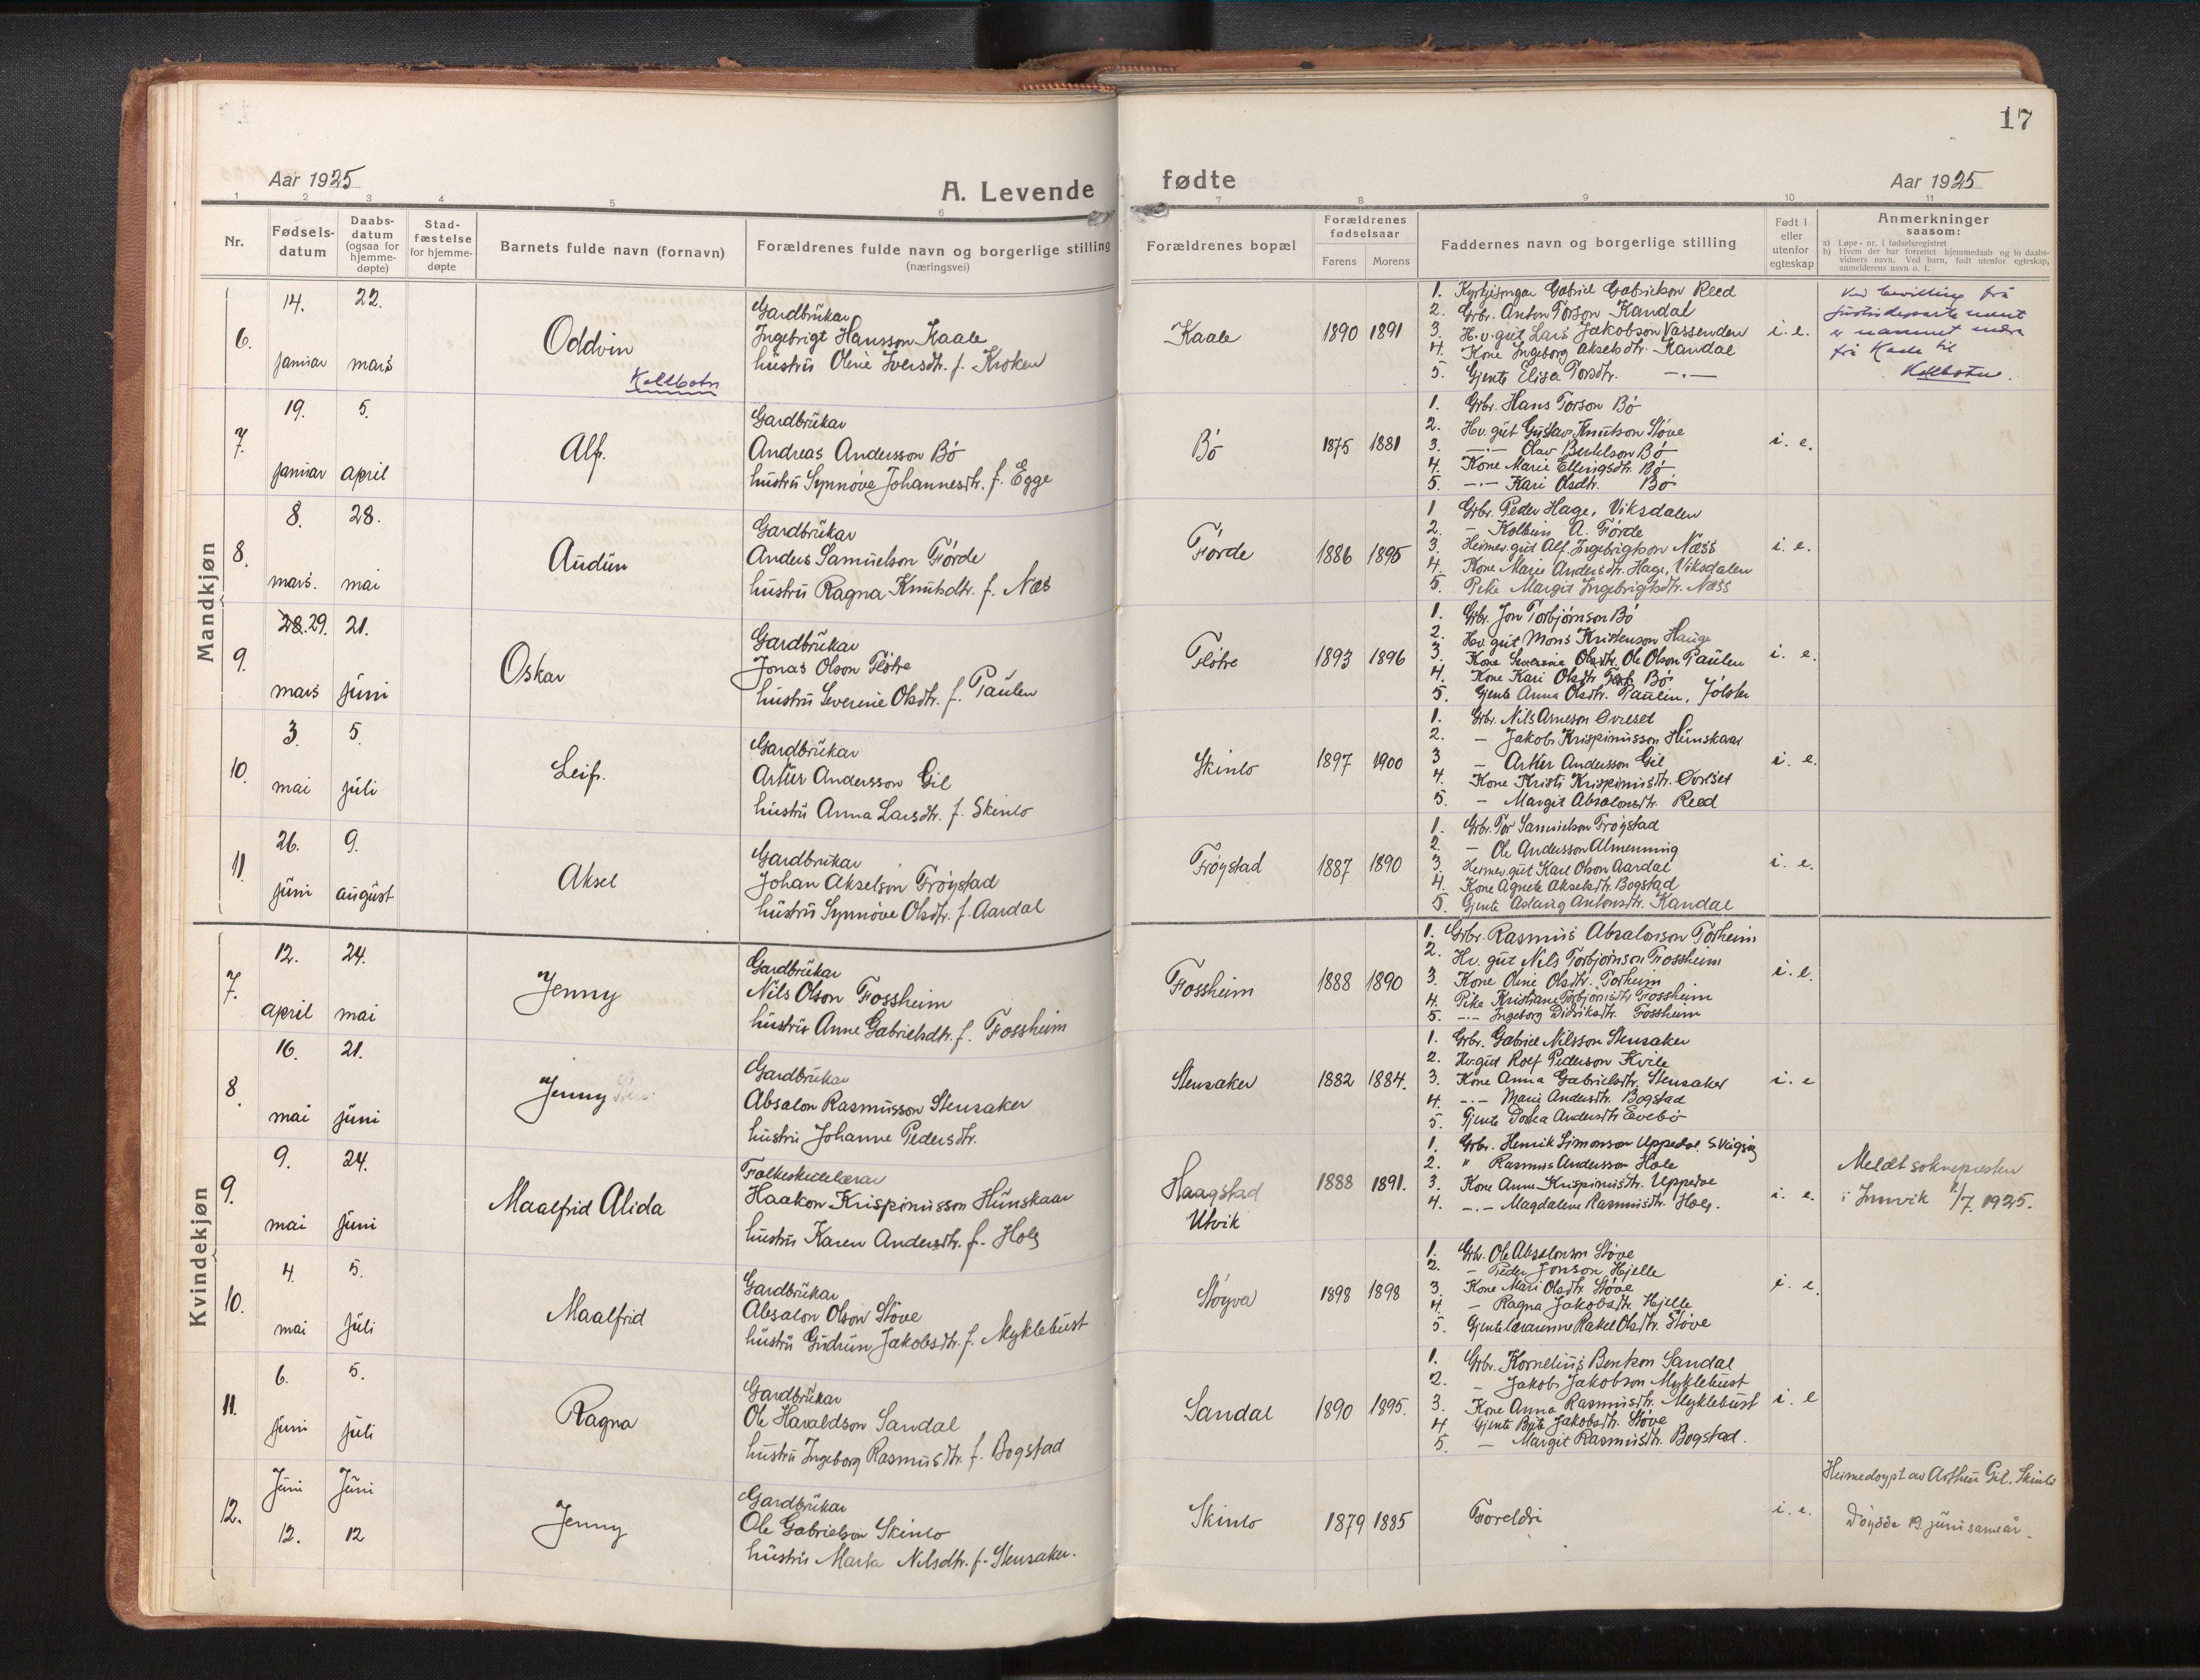 17
Aar 1925
A. Levende
fødte
Aar 1925
1 2 3 4 5 6 7 8 9 10 11
Nr.
Fødsels-
datum
Daabs-
datum
(ogsaa for
hjemme-
døpte)
Stad-
fæstelse
for hjemme-
døpte
Barnets fulde navn (fornavn)
Forældrenes fulde navn og borgerlige stilling
(næringsvei)
Forældrenes bopæl
Forældrenes
fødselsaar
Farens Morens
Faddernes navn og borgerlige stilling
Født i
eller
utenfor
egteskap
Anmerkninger
saasom:
a) Løpe-nr. i fødselsregistret
b) Hvem der har forrettet hjemmedaab og to daabs-
vidners navn. Ved barn, født utenfor egteskap,
anmelderens navn o. l.
Mandkjøn
6.
14. januar
22. mars
Oddvin
Kollbotn
Gardbrukar
Ingebrigt Hansson Kaale
hustru Oline Iversdtr. f. Kroken
Kaale
1890 1891
1. Kyrkjesongar Gabriel Gabrielson Reed
2. Grbr. Anton Torson Kandal
3. H.v. gut Lars Jakobson Vassenden
4. Kone Ingeborg Akselsdtr. Kandal
5. Gjente Elisa Torsdtr. —·—
i. e.
Ved bevilling frå
justisdepartementet
er namnet endra
frå Kaale til
Kollbotn.
7.
19. januar
5. april
Alf.
Gardbrukar
Andreas Andersson Bö
hustru Synnöve Johannesdtr. f. Egge
Bö
1875 1881
1. Grbr. Hans Torson Bö
2. Hv. gut Gustav Knutson Stöve
3. —·— Olav Bertelson Bö
4. Kone Marie Ellingsdtr. Bö
5. —·— Kari Olsdtr. Bö
i. e.
8.
8. mars.
28. mai
Audun
Gardbrukar
Anders Samuelson Förde
hustru Ragna Knutsdtr. f. Næs
Förde
1886 1895
1 Grbr. Peder Hage, Viksdalen
2. — Kolbein A. Förde
3. Heimev. gut Alf Ingebrigtson Næss
4. Kone Marie Andersdtr. Hage, Viksdalen
5. Pike Margit Ingebrigtsdtr. Næss
i. e.
9.
28. 29. mars
21. juni
Oskar
Gardbrukar
Jonas Olson Flötre
hustru Severine Olsdtr. f. Paulen
Flötre
1893 1896
1. Grbr. Jon Torbjörnson Bö
2. Hv. gut Mons Kristenson Hauge
3. Kone Severine Olsdtr. Ole Olson Paulen
4. Kone Kari Olsdtr Bö
5. Gjente Anna Olsdtr. Paulen, Jölster
i. e.
10.
3. mai
5. juli
Leif.
Gardbrukar
Artur Andersson Gil
hustru Anna Larsdtr. f. Skinlo
Skinlo
1897 1900
1. Grbr. Nils Arneson Övreset
2. — Jakob Krispinusson Hunskaar
3 — Artur Andersson Gil
4. Kone Kristi Krispinusdtr. Övreset
5. — Margit Absalonsdtr. Reed
i. e.
11.
26. juni
9. august
Aksel
Gardbrukar
Johan Akselson Fröystad
hustru Synnöve Olsdtr. f. Aardal
Fröystad
1887 1890
1. Grbr. Tor Samuelson Fröystad
2. — Ole Andersson Almenning
3. Heimev. gut Karl Olson Aardal
4. Kone Agnete Akselsdtr. Bogstad
5. Gjente Aslaug Antonsdtr. Kandal
i. e.
Kvindekjøn
7.
12. april
24. mai
Jenny
Gardbrukar
Nils Olson Fossheim
hustru Anne Gabrielsdtr. f. Fossheim
Fossheim
1888 1890
1. Grbr. Rasmus Absalonson Törheim
2. Hv. gut Nils Torbjörnson Fossheim
3. Kone Oline Olsdtr. Torheim
4. Pike Kristiane Torbjörnsdtr Fossheim
5. —·— Ingeborg Didriksdtr. Fossheim
i. e.
8.
16. mai
21. juni
Jenny
Gardbrukar
Absalon Rasmusson Stensaker
hustru Johanne Pedersdtr.
Stensaker
1882 1884.
1. Grbr. Gabriel Nilsson Stensaker
2. Hv. gut Rolf Pederson Kvile
3. Kone Anna Gabrielsdtr. Stensaker
4. —·— Marie Andersdtr. Bogstad
5. Gjente Dortea Andersdtr Evebö
i. e
9.
9. mai
24. juni
Maalfrid Alida
Folkeskulelærar
Haakon Krispinusson Hunskaar
hustru Karen Andersdtr. f. Hole
Haagstad
Utvik
1888 1891.
1. Grbr. Henrik Simonson Uppedal
2. " Rasmus Andersson Hole
3. Kone Anne Krispinusdtr. Uppedal
4. —·— Magdalene Rasmusdtr. Hole.
i. e.
Meldt soknepresten
i Innvik /7. 1925.
10.
4. mai
5. juli
Maalfrid
Gardbrukar
Absalon Olson Stöve
hustru Gudrun Jakobsdtr. f. Myklebust
Stöyva
1898 1898
1. Grbr. Ole Absalonson Stöve
2. — Peder Jonson Hjelle
3. Kone Mari Olsdtr. Stöve
4. — Ragna Jakobsdtr. Hjelle
5. Gjente lærarinne Rakel Olsdtr. Stöve
i. e.
11.
6. juni
5. juli
Ragna
Gardbrukar
Ole Haraldson Sandal
hustru Ingeborg Rasmusdtr. f. Bogstad
Sandal
1890 1895.
1. Grbr. Kornelius Bentson Sandal
2. — Jakob Jakobson Myklebust
3. Kone Anna Rasmusdtr. Myklebust
4. Gjente Brite Jakobsdtr. Stöve
5. — Margit Rasmusdtr. Bogstad.
i. e
12.
Juni 12.
Juni 12
Jenny
Gardbrukar
Ole Gabrielson Skinlo
hustru Marta Nilsdtr. f. Stensaker.
Skinlo
1879 1885
Foreldri
i. e.
Heimedöypt av Arthur Gil. Skinlo
Döydde 19. juni same år.